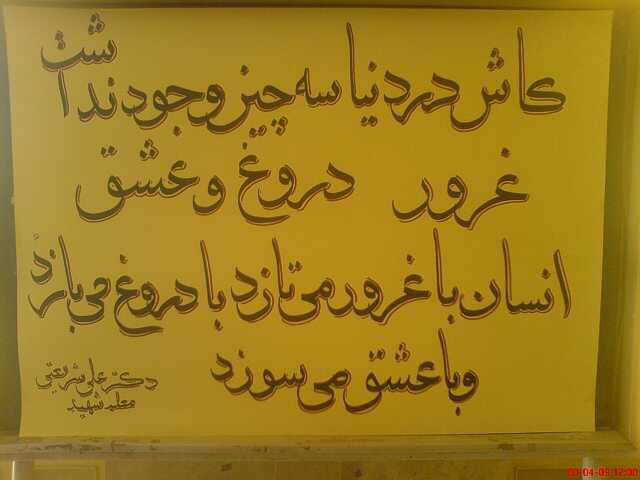 کاش در دنیا سه چیز وجود نداشت
غرور دروغ و عشق
انسان با غرور می تازد با دروغ می بازد
و با عشق می سوزد
دکتر علی شریعتی
معلم شهید
00-04-05 17:00